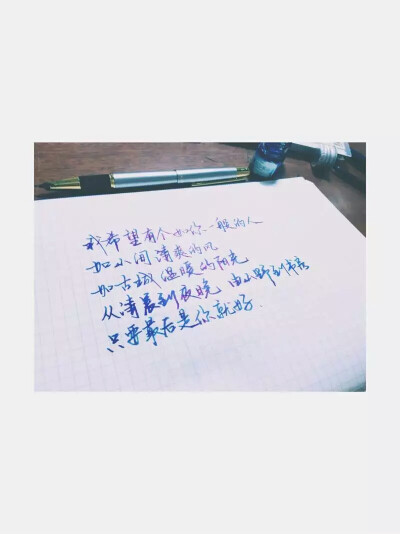 我希望有个如你一般的人
如山间清爽的风
如古城温暖的阳光
从清晨到夜晚 由山野到书房
只要最后是你就好.